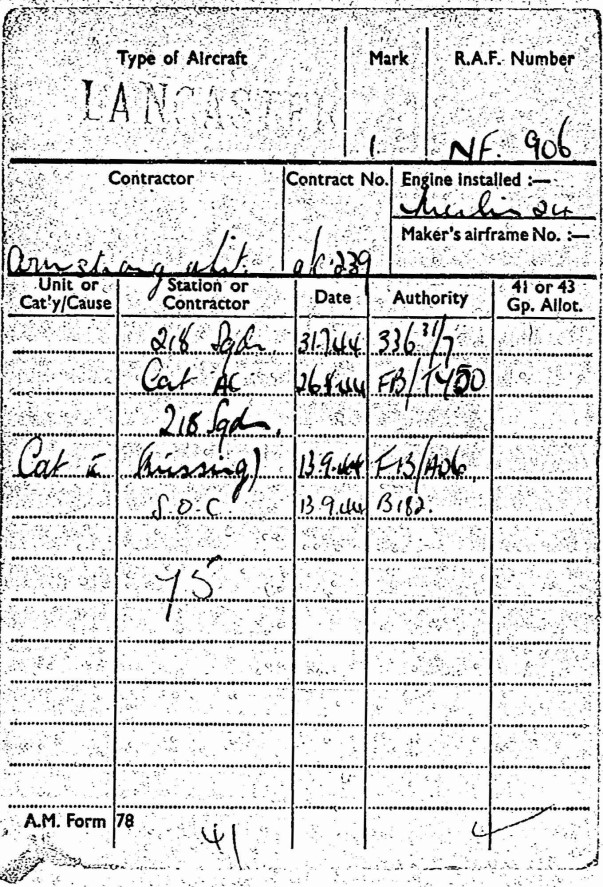 Type of Aircraft Mark R.A.F. Number
LANCASTER 1. NF. 906
Contractor Contract No. Engine installed :—
Merlin 24
Maker's airframe No. :—
Armstrong Whit. a/c 239
Unit or Cat'y/Cause Station or Contractor Date Authority 41 or 43 Gp. Allot.
218 Sqdn. 31.7.44 336 31/7
Cat AC 26.8.44 FB/
218 Sqdn.
Cat (missing) 13.9.44 FB/A06
S.O.C. 13.9.44 B182.
75
A.M. Form 78
41